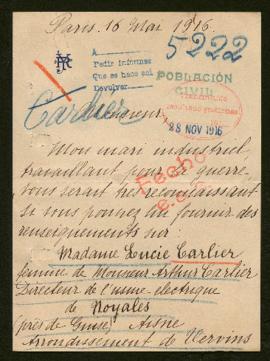 Paris, 16 Mai 1916.
A
Pedir informes
Que se hace así
Devolver
5222
POBLACIÓN
CIVIL
Carlier
Monsieur
28 NOV 1916
Mon mari industriel,
travaillant pour la guerre
vous serait très reconnaissant
si vous pouvez lui fournir des
renseignements sur :
Fecho
Madame Lucie Carlier
femme de Monsieur Arthur Carlier
Directeur de l'usine électrique
de Noyales
(près de Guise) Aisne
Arrondissement de Vervins